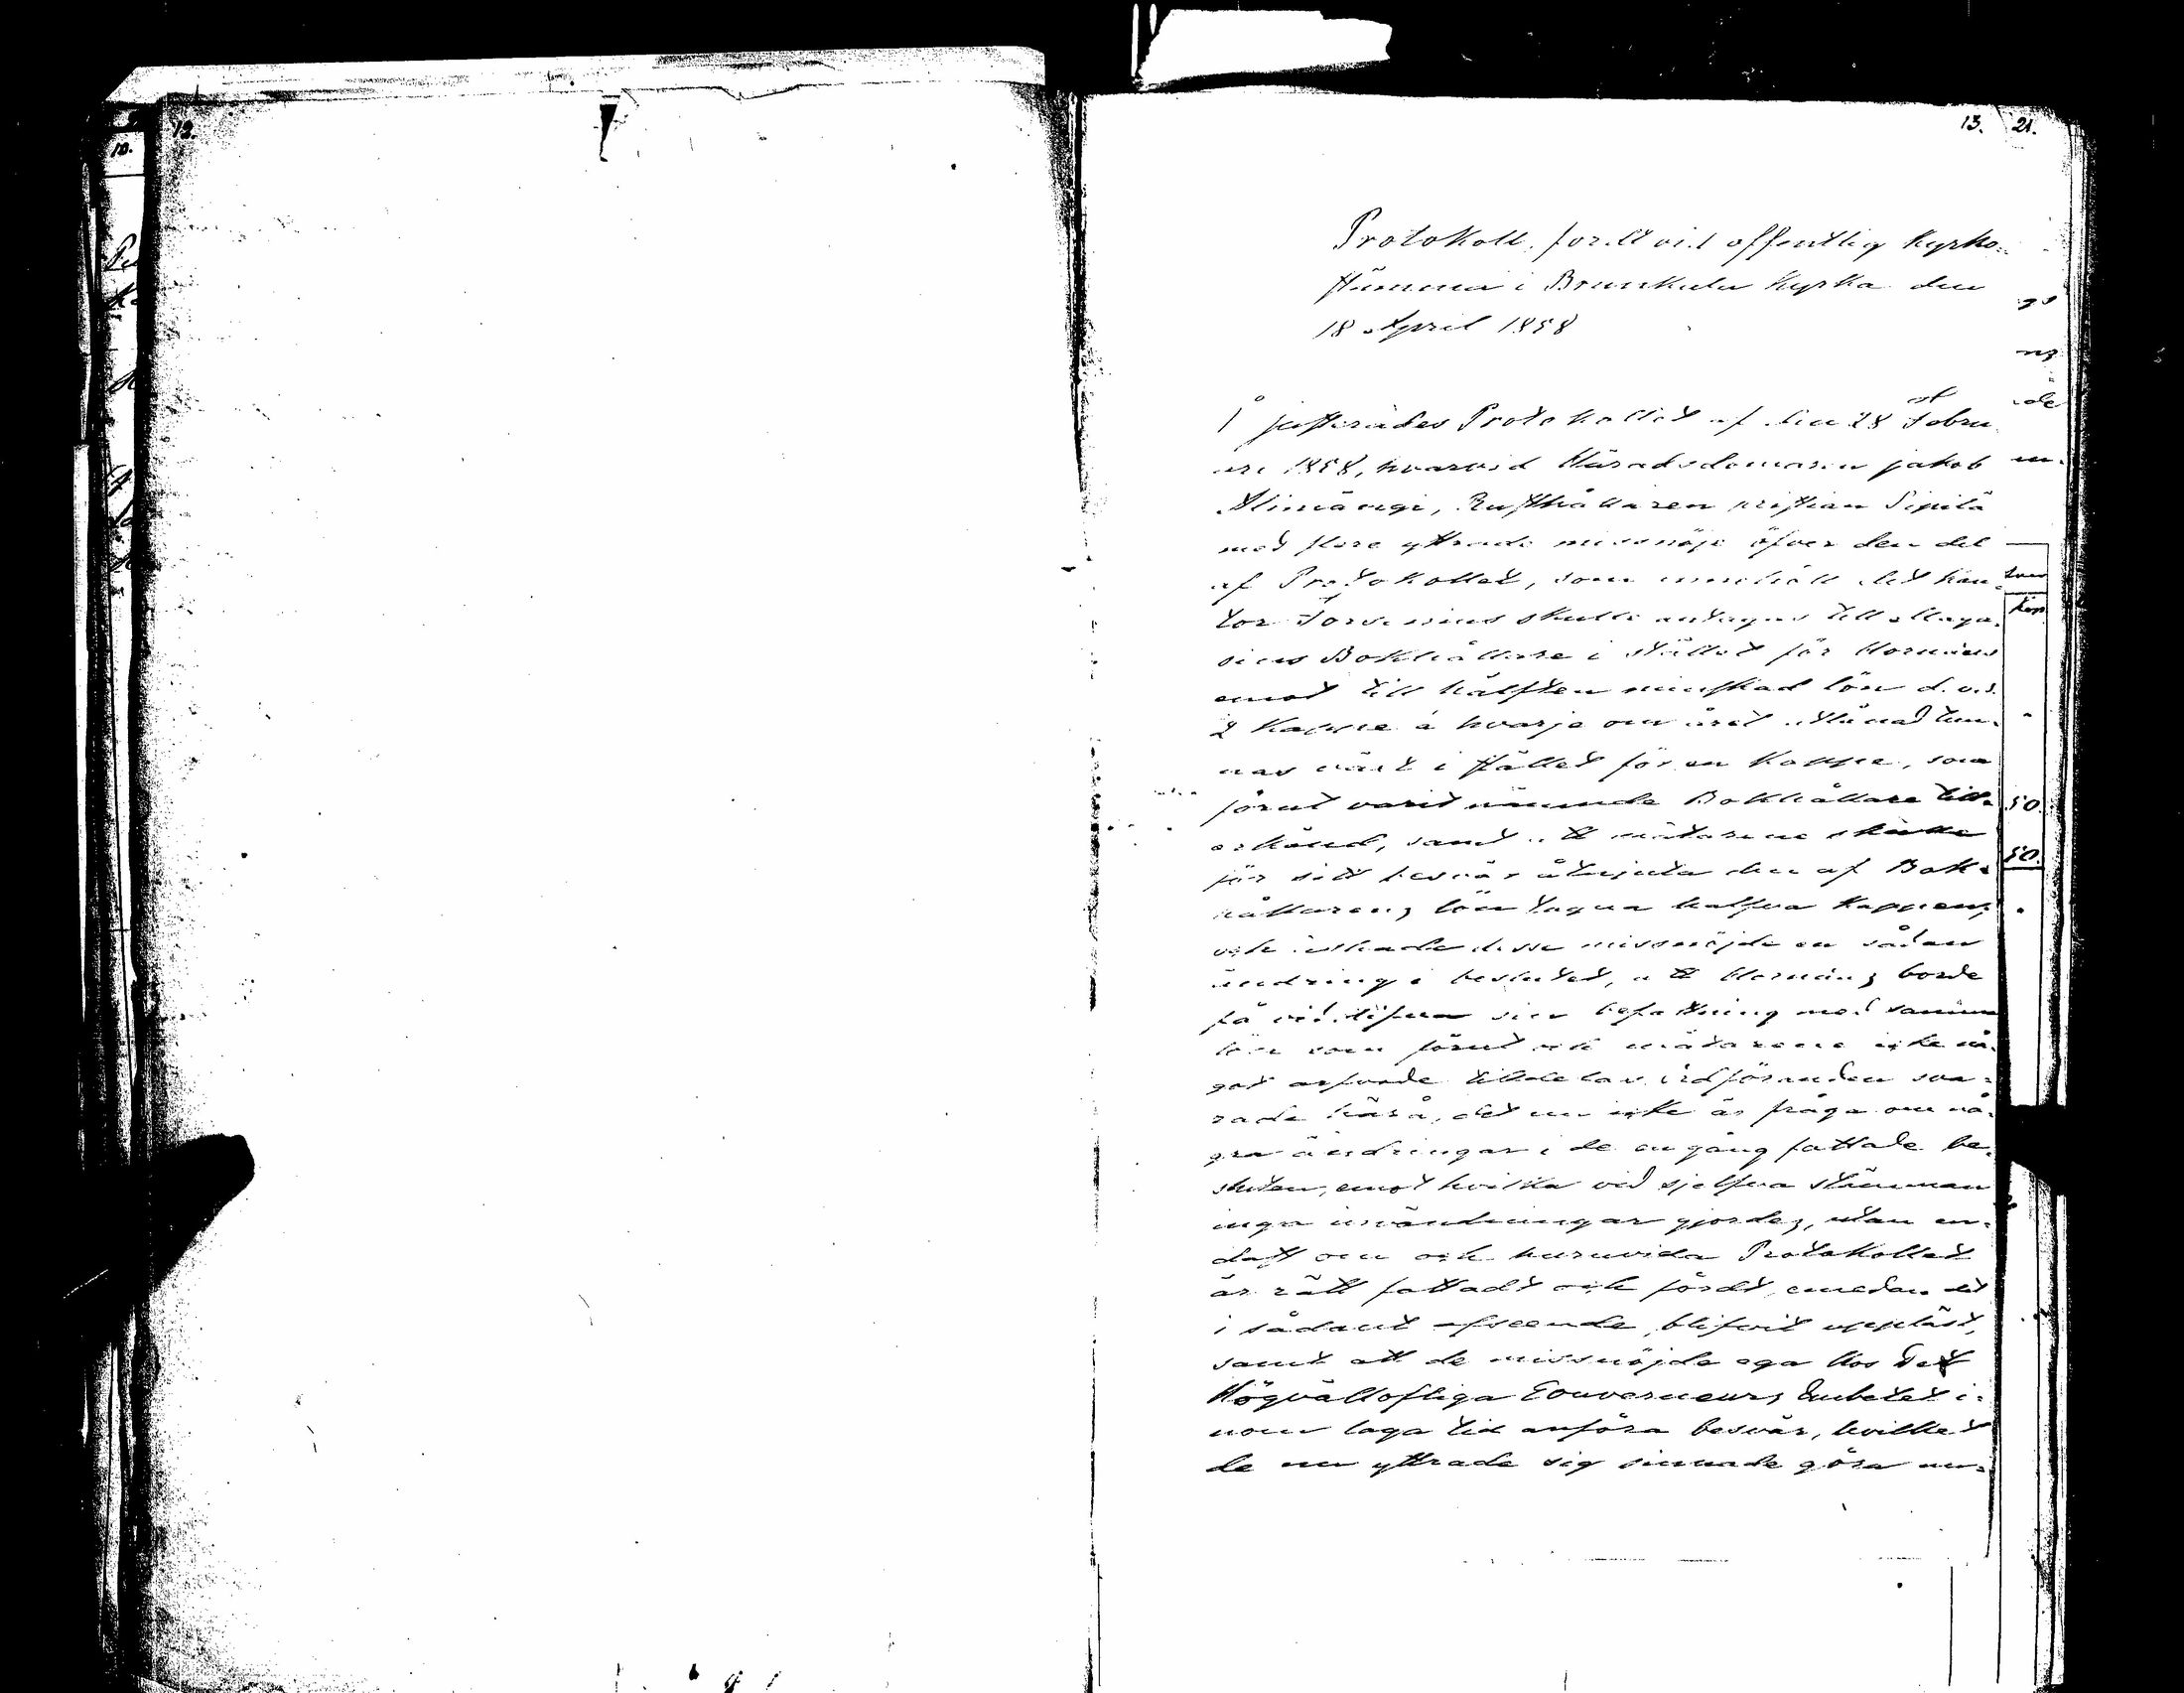 12.
10.
13. 21.
Protokoll, fördt vid offentlig Kyrko-
stämma i Brunkala Kyrka den
18 April 1858
justerades Protokollet af den 28 Febru
ari 1858, hvarvid Häradsdomaren Jakob
Rusthållaren Kristian Sipilä
med flere yttrade missnöje öfver den del
af Protokollet, som innehåll det kan-
tor skulle antagas till Maga-
sins Bokhållare i stället för Hornæus
emot till hälften minskad lön d.v.s.
½ Kappe à hvarje om året utlånad tun-
nas värt i stället för en Kappe, som
förut varit nämnde Bokhållare till-
erkänd, samt att mätarene skulle
för sitt besvär åtnjuta den af Bok-
hållarens lön tagna halfva Kappen;
och äskade desse missnöjde en sådan
ändring i beslutet, att Hornæus borde
få vid sin befattning med samma
lön som förut och mätarene icke nå-
got arfvode tilldelas. Ordföranden sva-
rade härå, det nu icke är fråga om nå-
gra ändringar i de en gång fattade be-
sluten, emot hvilka vid sjelfva stämman
inga invändningar gjordes, utan en-
dast om och huruvida Protokollet
är rätt fattadt och fördt, emedan det
i sådant afseende blifvit uppläst,
samt att de missnöjde ega hos Det
Högvällofliga Gouverneurs Embetet i-
nom laga tid anföra besvär, hvilket
de nu yttrade sig sinnade göra un-
50.
50.